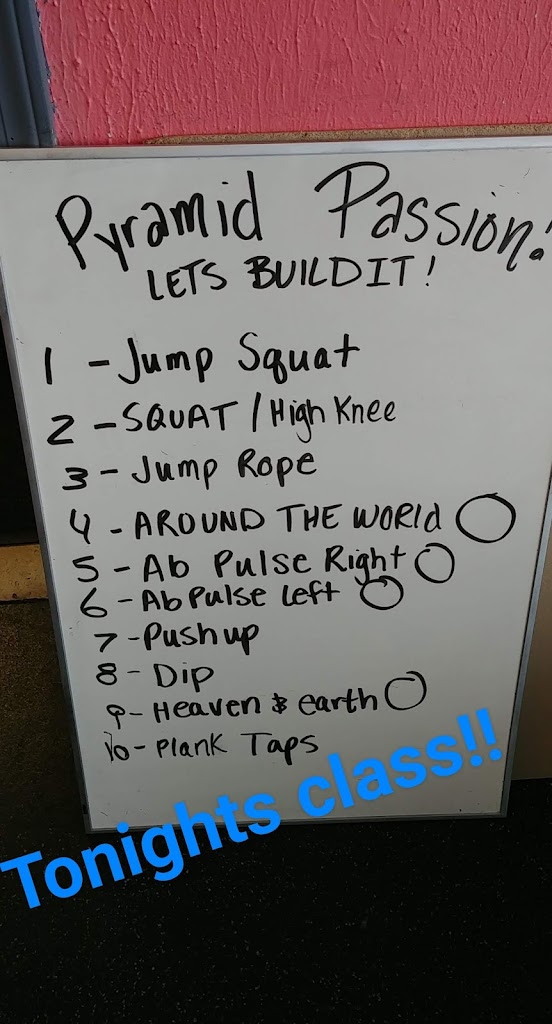 Pyramid Passion!
LETS BUILD IT!
1 - Jump Squat
2 - SQUAT / High Knee
3 - Jump Rope
4 - AROUND THE WORLD
5 - Ab Pulse Right
6 - Ab Pulse Left
7 - Push up
8 - Dip
9 - Heaven & earth
10 - Plank Taps
Tonights class!!